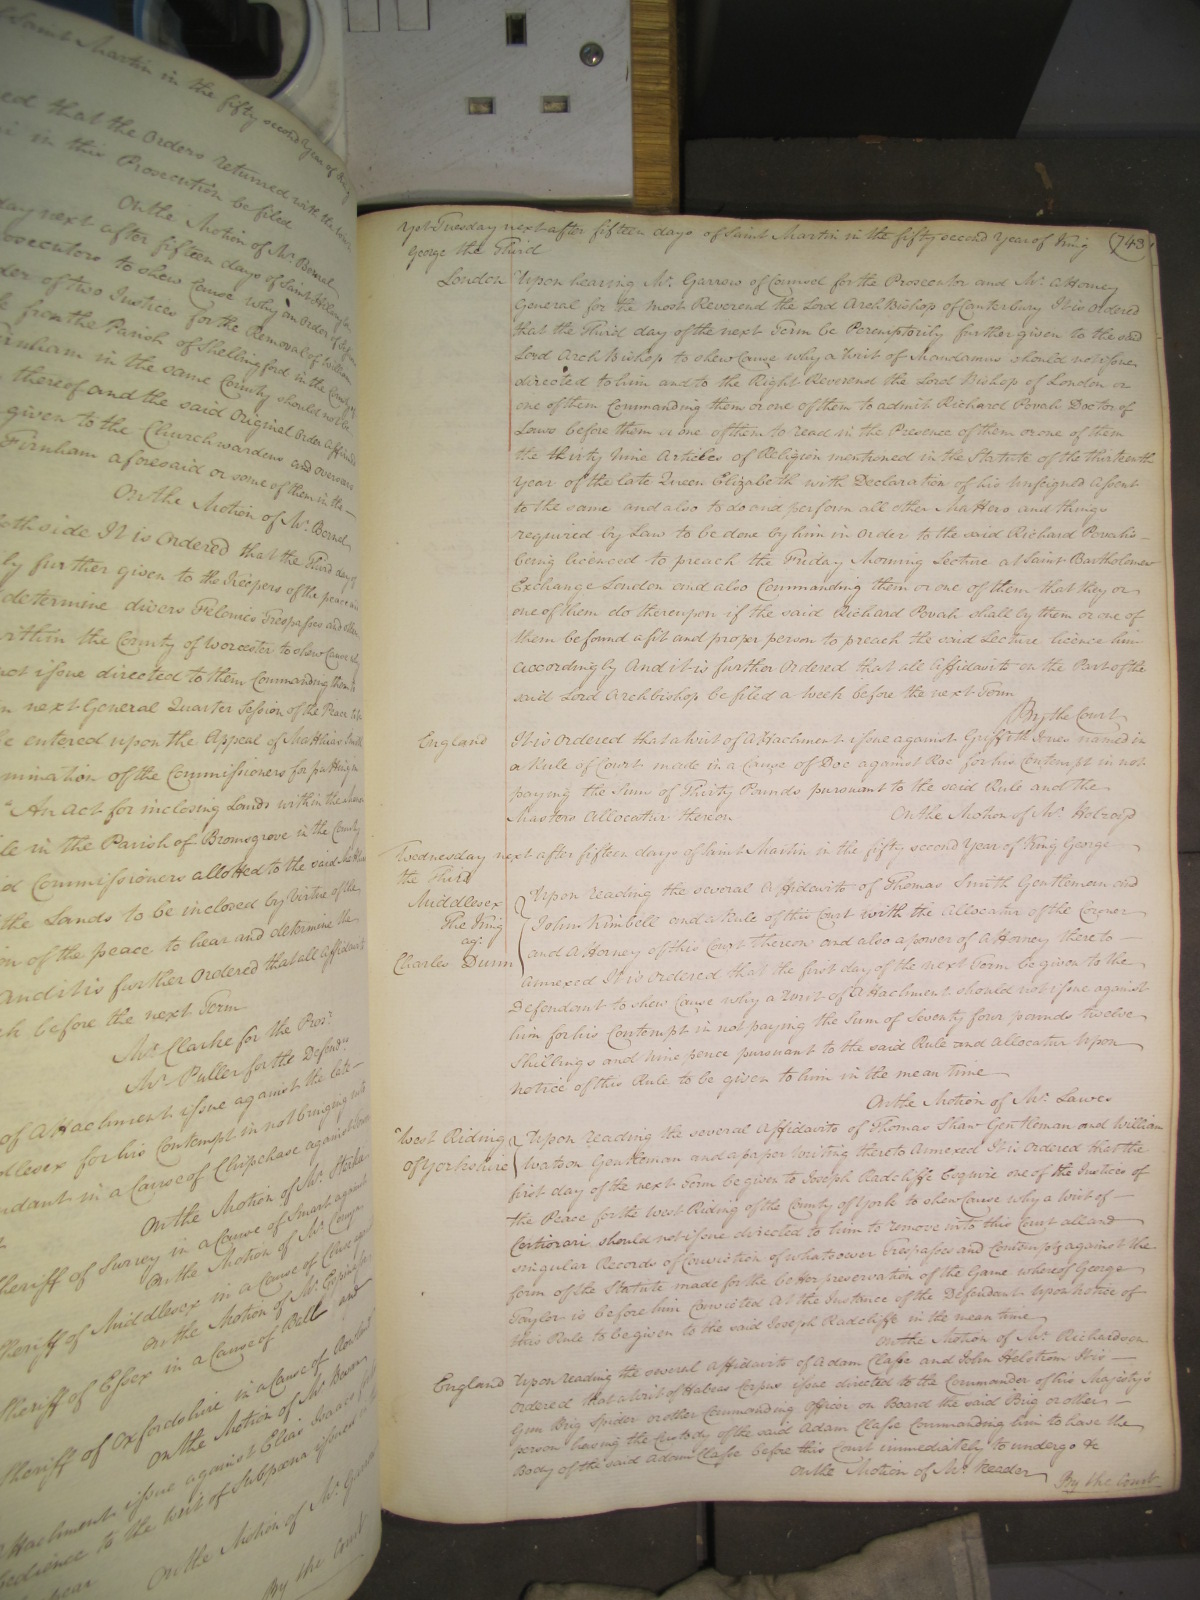 Saint Martin in the fifty second Year of King
ed that the Orders returned with the
in this Prosecution be filed
On the Motion of Mr. Bernal
day next after fifteen days of Saint
rosecutors to shew Cause why an Order of
der of two Justices for the Removal of William
from the Parish of Shellingford in the County
in the same County should not be
thereof and the said Original Order
given to the Churchwardens and overseers
Firnham aforesaid or some of them in the
On the Motion of Mr. Bernal
oth side It is Ordered that the Third day of
ly further given to the Keepers of the peace
determine divers Felonies Trespasses and
within the County of Worcester to shew Cause why
not issue directed to them Commanding them
next General Quarter Session of the Peace to
be entered upon the Appeal of Matthias
mination of the Commissioners for putting in
"An Act for inclosing Lands within the
in the Parish of Bromsgrove in the County
d Commissioners allotted to the said
the Lands to be inclosed by Virtue of the
on of the peace to hear and determine the
And it is further Ordered that all Affidavits
before the next Term
Mr. Clarke for the Prosr.
Mr. Puller for the Defendt.
of Attachment issue against the late
dlesex for his Contempt in not bringing into
ndant in a Cause of Chipchase against
On the Motion of Mr.
Sheriff of Surrey in a Cause of Smart against
On the Motion of Mr.
Sheriff of Middlesex in a Cause of
On the Motion of Mr. Espinasse
Sheriff of Essex in a Cause of Bell and
Sheriff of Oxfordshire in a Cause of
On the Motion of Mr.
Attachment issue against Elias Isaac
edience to the writ of Subpœna issued
On the Motion of Mr.
By the Court
Yet Tuesday next after fifteen days of Saint Martin in the fifty second Year of King
George the Third
743
London Upon hearing Mr. Garrow of Counsel for the Prosecutor and Mr. Attorney
General for the most Reverend the Lord Arch Bishop of Canterbury It is Ordered
that the Third day of the next Term be Peremptorily further given to the said
Lord Arch Bishop to shew Cause why a Writ of Mandamus should not issue
directed to him and to the Right Reverend the Lord Bishop of London or
one of them Commanding them or one of them to admit Richard Povah Doctor of
Laws before them or one of them to read in the Presence of them or one of them
the thirty Nine Articles of Religion mentioned in the Statute of the thirteenth
Year of the late Queen Elizabeth with Declaration of his Unfeigned Assent
to the same and also to do and perform all other Matters and things
required by Law to be done by him in Order to the said Richard Povahs
being licenced to preach the Friday Morning Lecture at Saint Bartholomew
Exchange London and also Commanding them or one of them that they or
one of them do thereupon if the said Richard Povah shall by them or one of
them be found a fit and proper person to preach the said Lecture licence him
accordingly And it is further Ordered that all Affidavits on the Part of the
said Lord Archbishop be filed a Week before the next Term
By the Court
England It is Ordered that a Writ of Attachment issue against Griffith Jones named in
a Rule of Court made in a Cause of Doe against Roe for his Contempt in not
paying the Sum of Thirty Pounds pursuant to the said Rule and the
Masters Allocatur thereon On the Motion of Mr. Holroyd
Wednesday next after fifteen days of Saint Martin in the fifty second Year of King George
the Third
Middlesex Upon reading the several Affidavits of Thomas Smith Gentleman and
The King John Kimbell and a Rule of this Court with the Allocatur of the Coroner
agt. and Attorney of this Court thereon and also a power of Attorney thereto
Charles Dunn annexed It is Ordered that the first day of the next Term be given to the
Defendant to shew Cause why a Writ of Attachment should not issue against
him for his Contempt in not paying the Sum of Seventy four pounds twelve
Shillings and nine pence pursuant to the said Rule and Allocatur Upon
notice of this Rule to be given to him in the mean time
On the Motion of Mr. Lawes
West Riding Upon reading the several Affidavits of Thomas Shaw Gentleman and William
of Yorkshire Watson Gentleman and a paper Writing thereto Annexed It is Ordered that the
first day of the next Term be given to Joseph Radcliffe Esquire one of the Justices of
the Peace for the West Riding of the County of York to shew Cause why a Writ of
Certiorari should not issue directed to him to remove into this Court all and
singular Records of Conviction of whatsoever Trespasses and Contempts against the
form of the Statute made for the better preservation of the Game whereof George
Taylor is before him Convicted At the Instance of the Defendant Upon notice of
this Rule to be given to the said Joseph Radcliffe in the mean time
On the Motion of Mr. Richardson
England Upon reading the several Affidavits of Adam Classe and John Helstrom It is
Ordered that a Writ of Habeas Corpus issue directed to the Commander of his Majesty's
Gun Brig Spider or other Commanding Officer on Board the said Brig or other
person having the Custody of the said Adam Classe Commanding him to have the
Body of the said Adam Classe before this Court immediately to undergo &c
On the Motion of Mr. Reader
By the Court